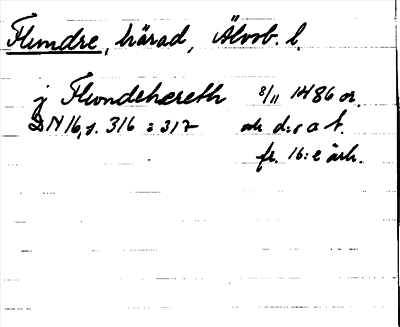 Flundre, härad, Älvsb. l.
j Flwndehereth 8/11 1486 or.
DN 16, s. 316 = 317 och d:o a f.
fr. 16:e årh.